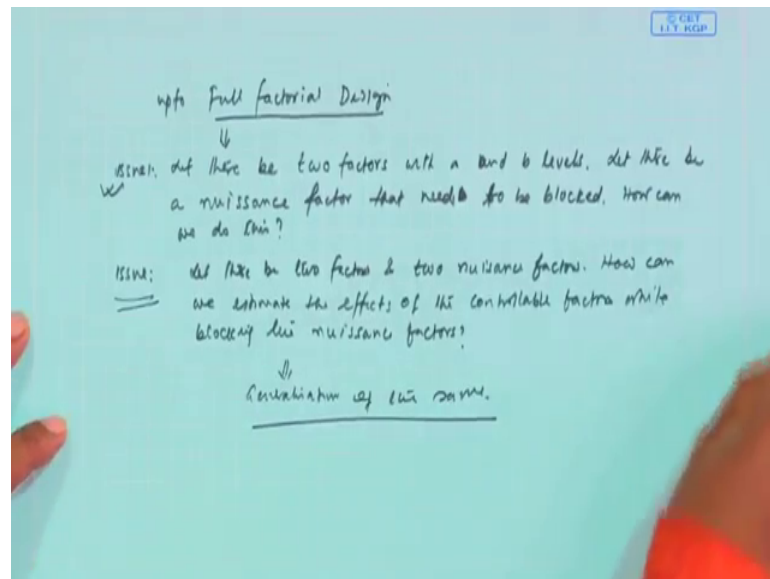 © CET
I.I.T. KGP
upto Full factorial Design
Issue1: Let there be two factors with a and b levels. Let there be
a nuissance factor that needs to be blocked. How can
we do this?
Issue: Let there be two factors & two nuisance factors. How can
we estimate the effects of the controllable factors while
blocking the nuissance factors?
Generalization of the same.